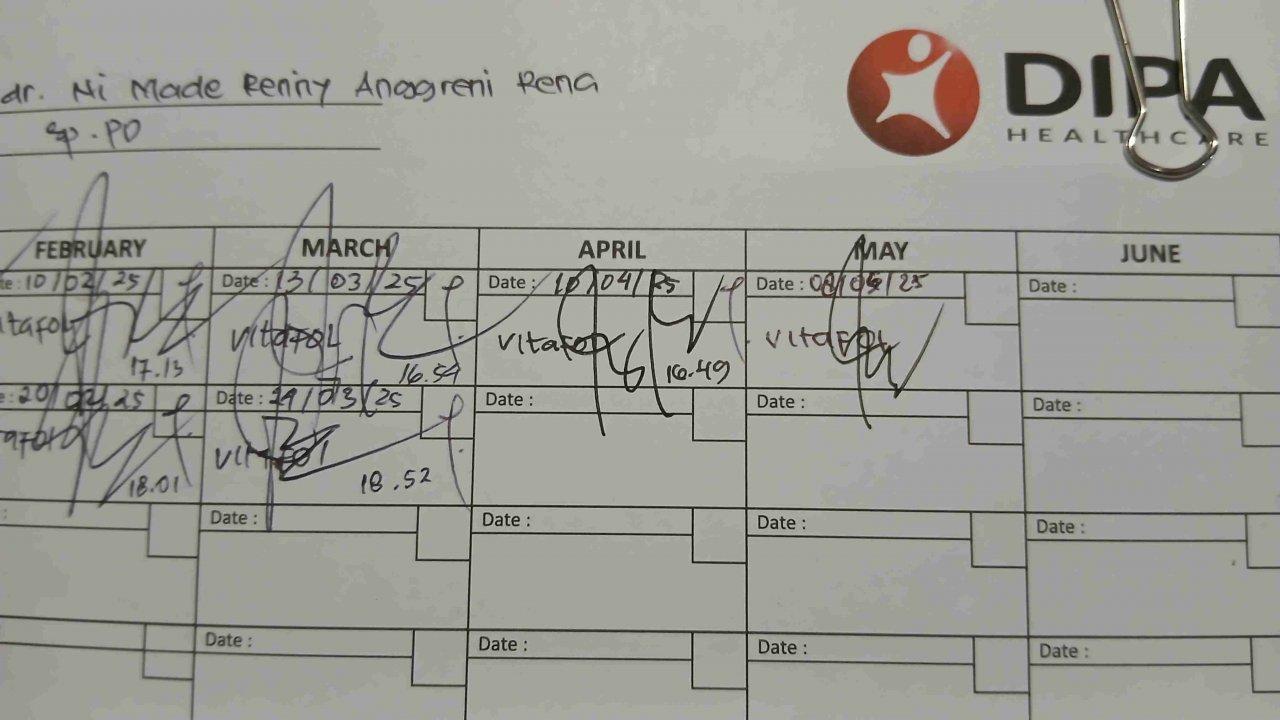 dr. Ni Made Renny Anggreni Rena
Sp.PD
DIPA
HEALTHCARE
FEBRUARY MARCH APRIL MAY JUNE
te : 10/02/25 Date : 13/03/25 Date : 10/04/25 Date : 08/05/25 Date :
itafol Vitafol Vitafol Vitafol
17.13 16.54 16.49
e : 20/02/25 Date : /03/25 Date : Date : Date :
tafol Vitafol
18.01 18.52
: Date : Date : Date : Date :
Date : Date : Date : Date :